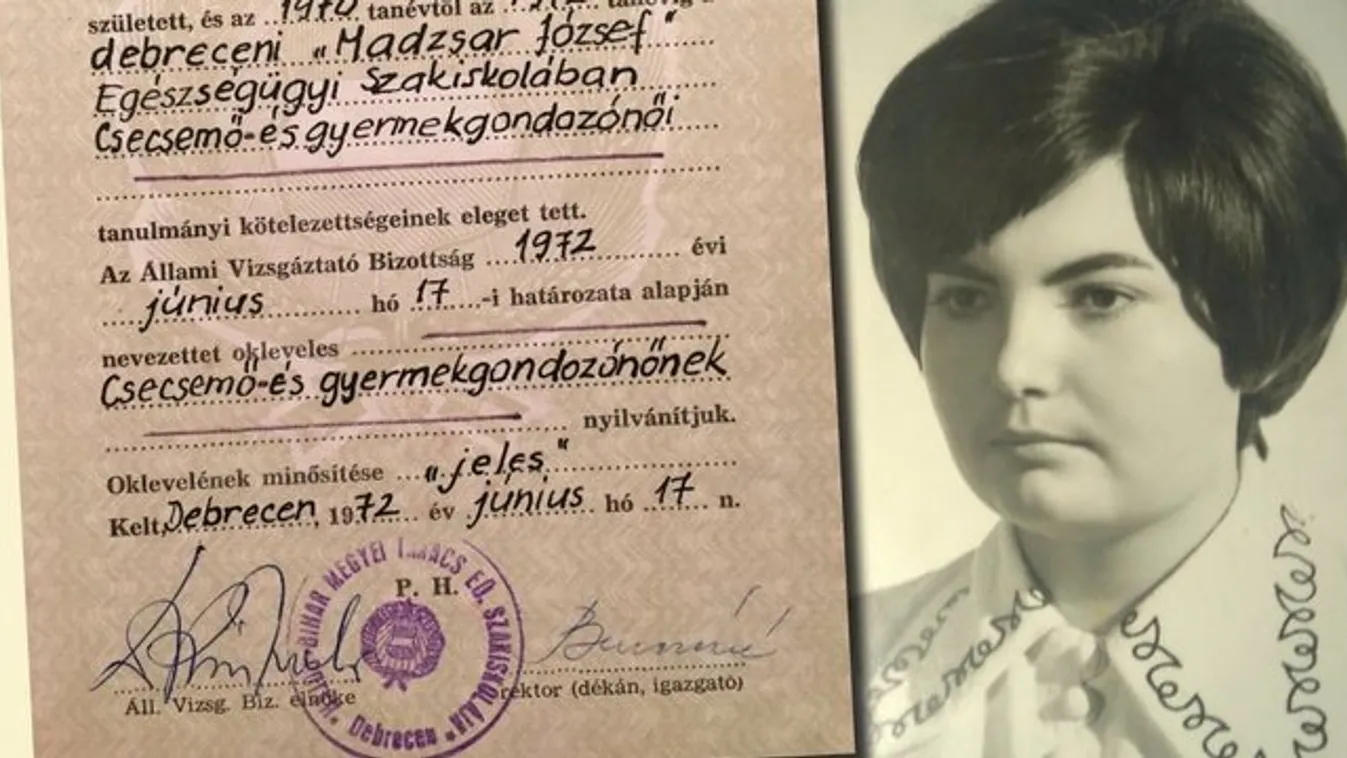 született, és az ..1970 tanévtől az
debreceni „Madzsar József"
Egészségügyi Szakiskolában
Csecsemő-és gyermekgondozónői
tanulmányi kötelezettségeinek eleget tett.
Az Állami Vizsgáztató Bizottság ....1972............ évi
.....június............. hó 17.....-i határozata alapján
nevezettet okleveles
Csecsemő-és gyermekgondozónőnek
nyilvánítjuk.
Oklevelének minősítése ...„jeles"
Kelt, Debrecen, 1972... év június hó ...17... n.
P. H.
BIHAR MEGYEI TANÁCS EÜ. SZAKISKOLÁJA
Debrecen
Áll. Vizsg. Biz. elnöke
rektor (dékán, igazgató)